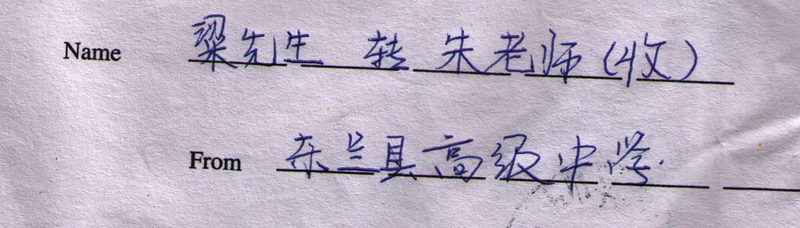 Name 梁先生 转 朱老师(收)
From 东兰县高级中学.